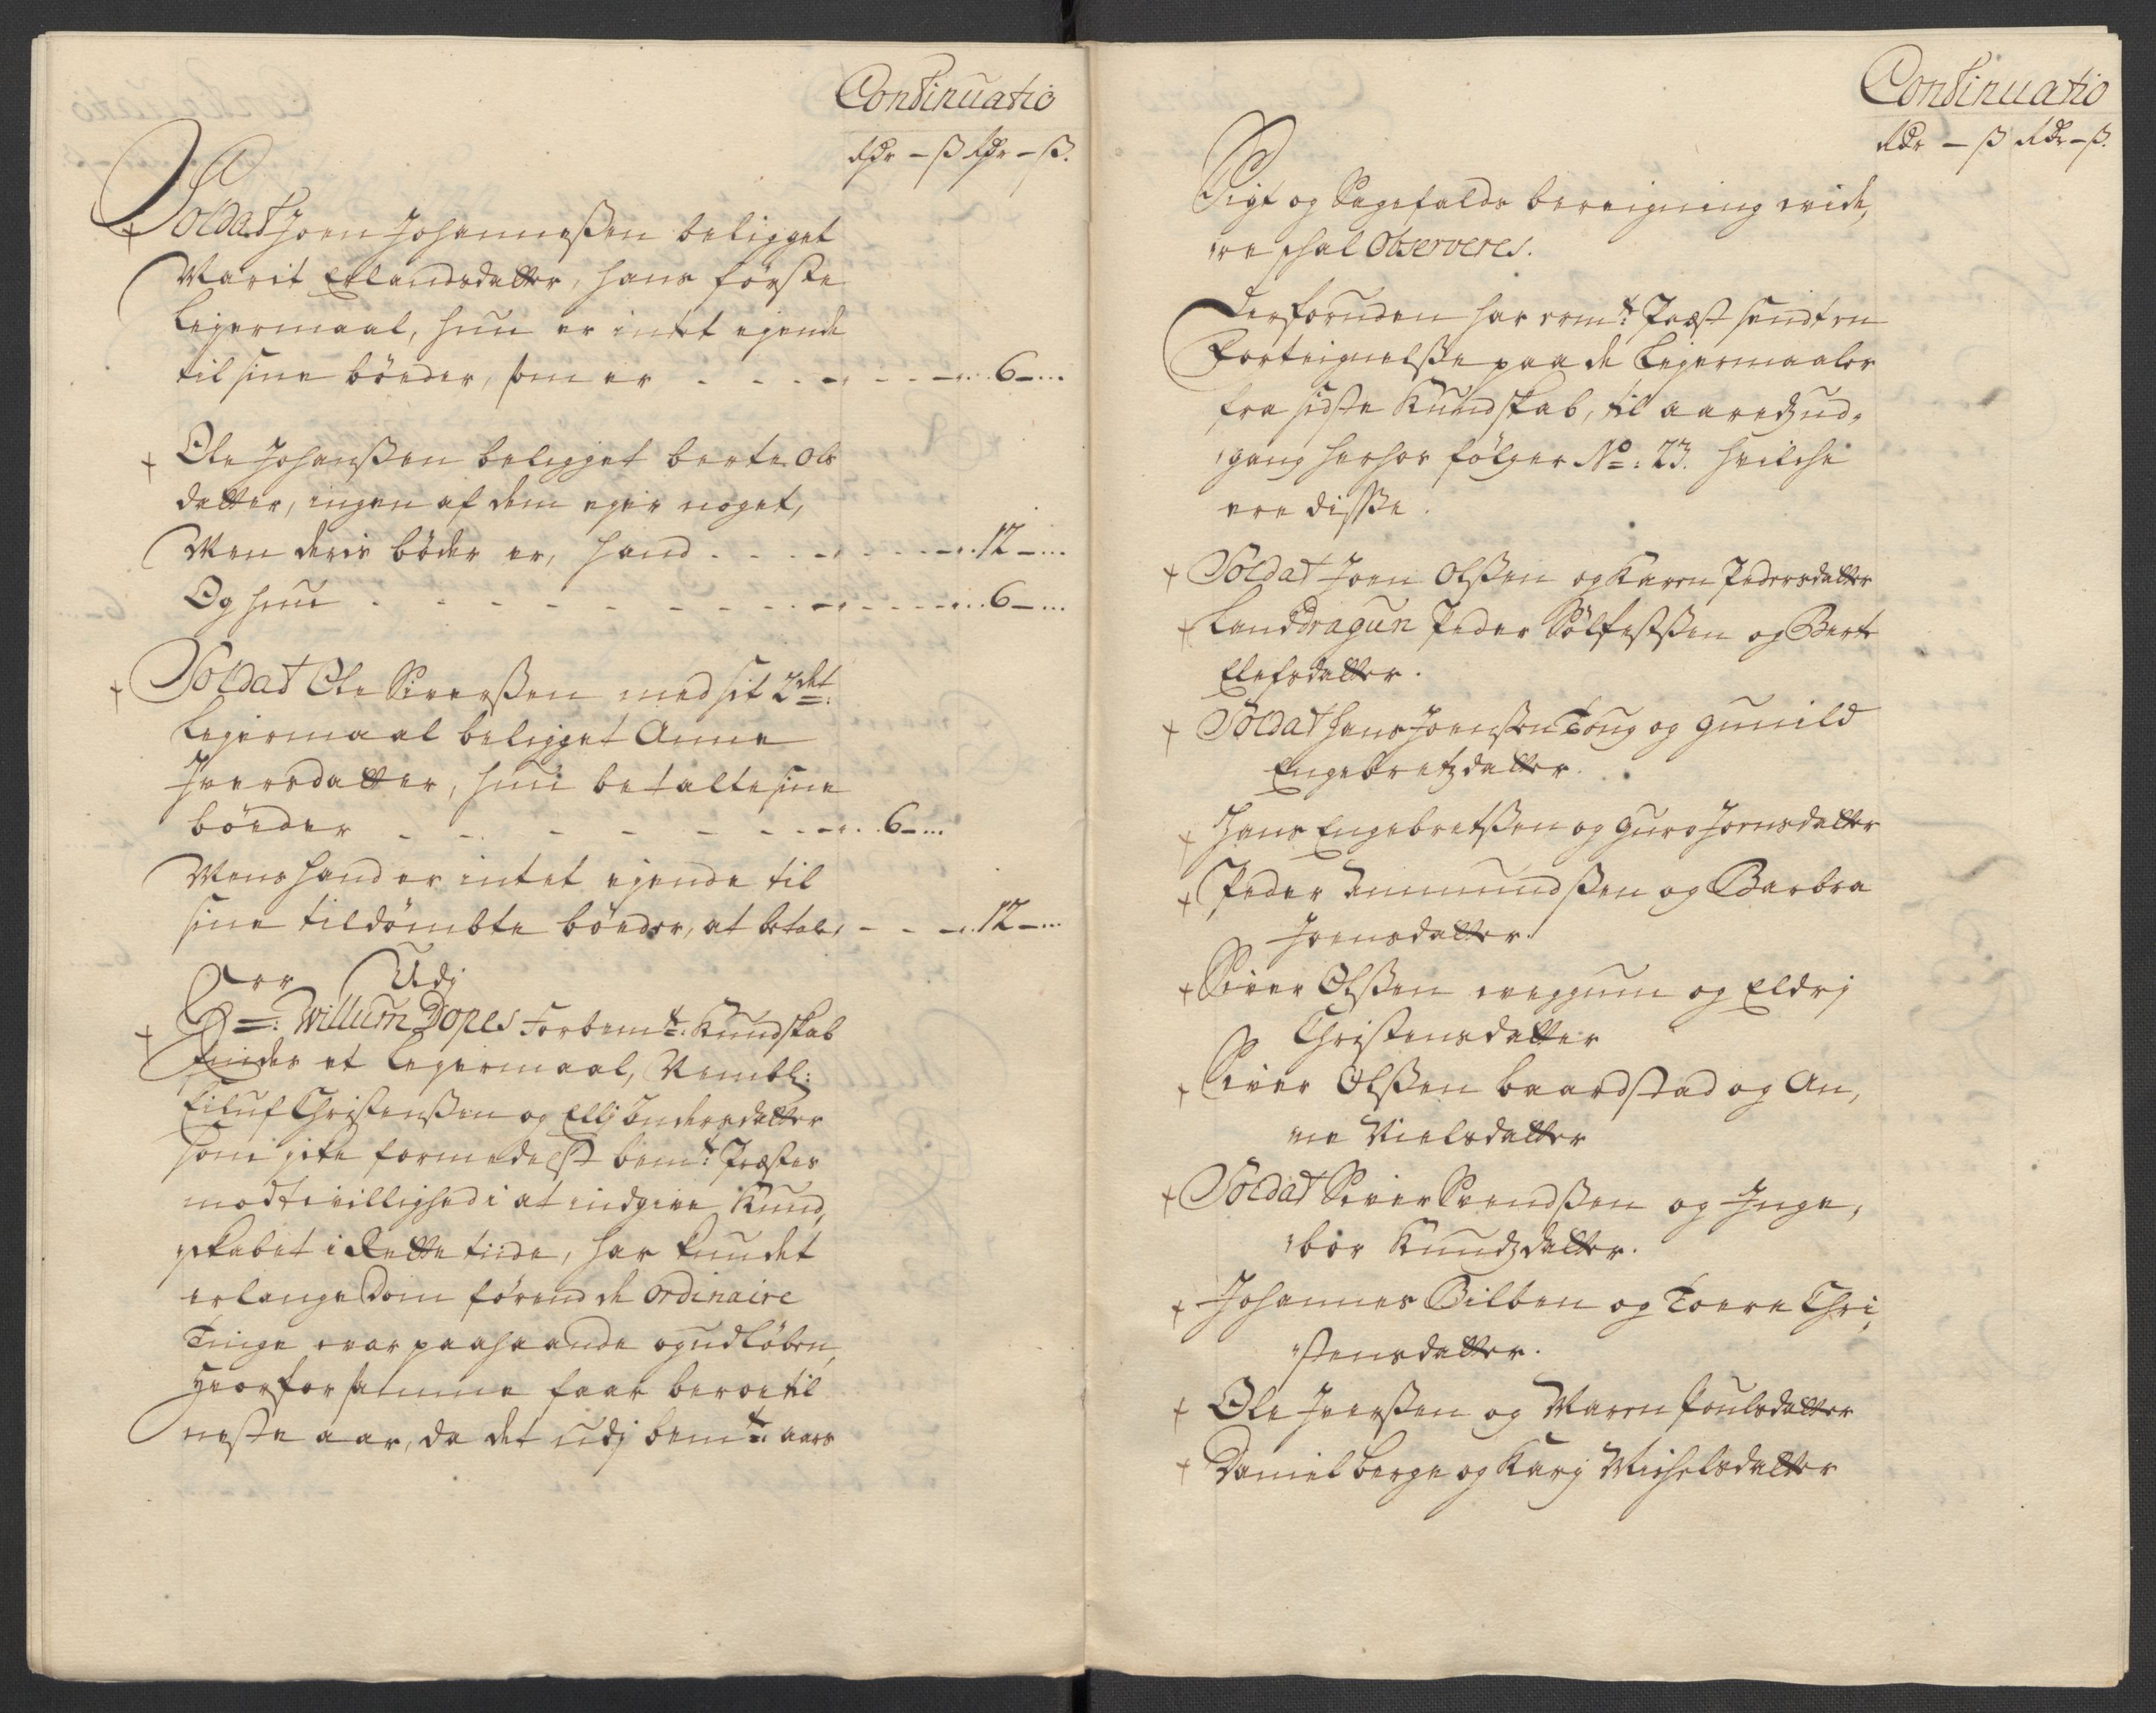 Continuatio
Rdr – ß Rdr – ß.
Soldat Joen Johannesßen beligget
Marit Erlandsdatter, hans förste
Leyermaal, hun er intet eyende
til sine böeder, som er - - - - - 6 – ...
Ole Johanßen beligget berte Ols
datter, ingen af dem eyer noget,
Men deris böder er, hand - - - - 12 – ...
Og hun - - - - - - - - 6 – ...
Soldat Ole Siverßen med sit 2det:
Leyermaal beligget Anne
Iversdatter, hun betalte sine
böeder - - - - - - 6 – ...
Mens hand er intet eyende til
sine tildömbte böeder, at betale, - - - 12 – ...
Udj
Hr: Willum Dopes Forbemt: Kundskab
findes et Leyermaal, Nembl:
Eiluf Christenßen og Ellj Andersdatter
som icke formedelst bemt: Præstes
modtvillighed i at indgive Kund,
skabet i Rette tide, har kundet
erlange Dom förend de ordinaire
Tinge var paahaande og udlöben,
Hvorfor samme faar beroe til
neste aar, da det udj bemt: aars
Continuatio
Rdr – ß Rdr – ß.
Sigt og Sagefalds beregning vide,
re schal Observeres.
Derforuden har ermt: Præst sendt en
Forteignelße paa de Leyermaaler
fra sidste Kundskab, til aaretz ud,
gang herhos fölger No: 23. hvilche
ere disße.
Soldat Joen Olßen og Karen Pedersdatter
Landdragun Peder Sölfestßen og Berte
Elefsdatter.
Soldat Hans Joenßen Toug og Gunild
Engebretzdatter.
Hans Engebretßen og Guro Joensdatter
Peder Ammundßen og Barbra
Joensdatter.
Siver Olßen Veggum og Eldrj
Christensdatter
Siver Olßen baardstad og An,
ne Nielsdatter
Soldat Siver Svendßen og Inge,
bor Knudzdatter.
Johannes Bilben og Toere Chri,
stensdatter.
Ole Iverßen og Maren Poulsdatter
Daniel berge og Karj Michelsdatter